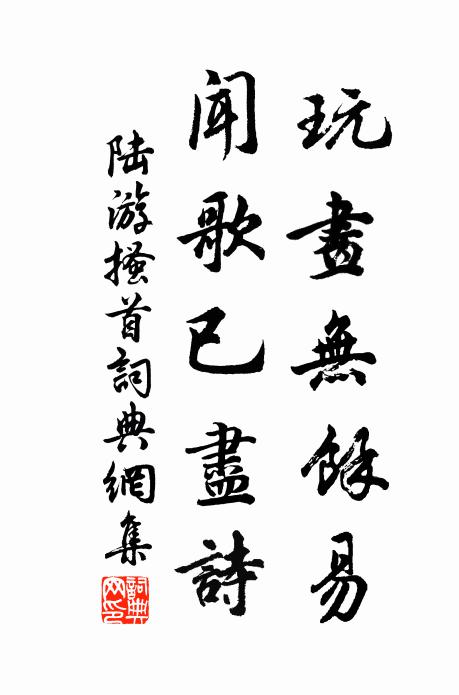 玩畫無餘易
聞歌已盡詩
陸游搔首詞典網集
詞典网印